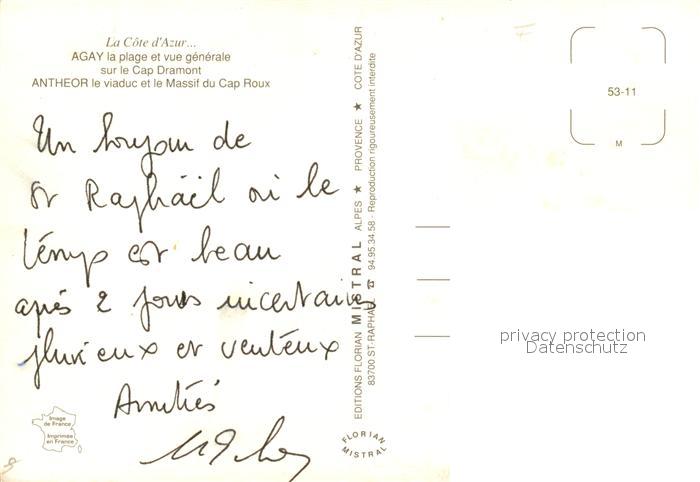 La Côte d'Azur...
AGAY la plage et vue générale
sur le Cap Dramont
ANTHEOR le viaduc et le Massif du Cap Roux
Un de
St Raphäel où le
temps est beau
après 2 jours incertains
pluvieux et venteux
Amitiés
Image
de France
Imprimée
en France
EDITIONS FLORIAN MISTRAL ALPES ★ PROVENCE ★ COTE D'AZUR
83700 ST-RAPHAEL ☎ 94.95.34.58 - Reproduction rigoureusement interdite
FLORIAN
MISTRAL
53-11
M
privacy protection
Datenschutz